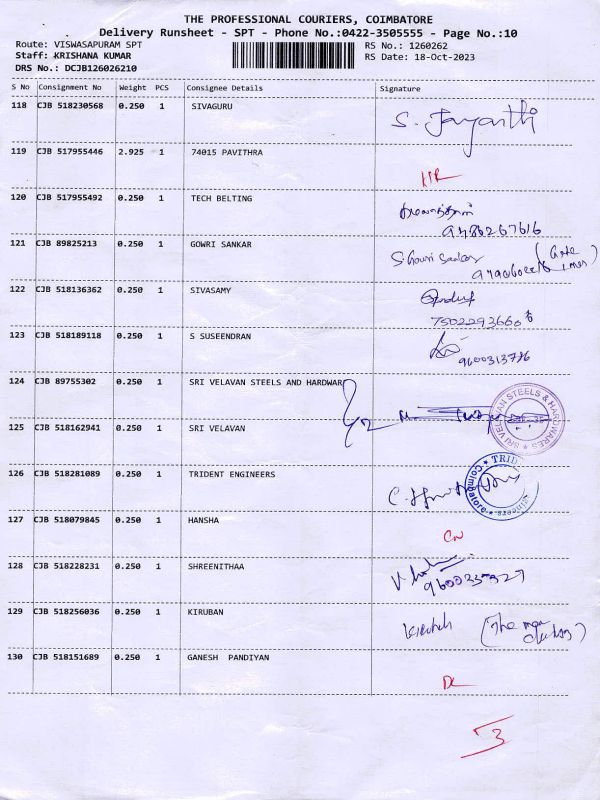 THE PROFESSIONAL COURIERS, COIMBATORE
Delivery Runsheet - SPT - Phone No.:0422-3505555 - Page No.:10
Route: VISWASAPURAM SPT RS No.: 1260262
Staff: KRISHANA KUMAR RS Date: 18-Oct-2023
DRS No.: DCJB126026210
S No Consignment No Weight PCS Consignee Details Signature
118 CJB 518230568 0.250 1 SIVAGURU S. Jayanthi
119 CJB 517955446 2.925 1 74015 PAVITHRA
120 CJB 517955492 0.250 1 TECH BELTING
9786267616
121 CJB 89825213 0.250 1 GOWRI SANKAR S. Gowri Sankar
122 CJB 518136362 0.250 1 SIVASAMY
7502293660
123 CJB 518189118 0.250 1 S SUSEENDRAN
9600313776
124 CJB 89755302 0.250 1 SRI VELAVAN STEELS AND HARDWAR
SRI VELAVAN STEELS & HARDWARES
125 CJB 518162941 0.250 1 SRI VELAVAN
126 CJB 518281089 0.250 1 TRIDENT ENGINEERS
Coimbatore
127 CJB 518079845 0.250 1 HANSHA
128 CJB 518228231 0.250 1 SHREENITHAA
129 CJB 518256036 0.250 1 KIRUBAN
130 CJB 518151689 0.250 1 GANESH PANDIYAN
DL